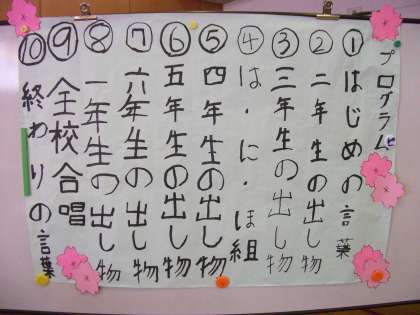 プログラム
①はじめの言葉
②二年生の出し物
③三年生の出し物
④は・に・ほ組
⑤四年生の出し物
⑥五年生の出し物
⑦六年生の出し物
⑧一年生の出し物
⑨全校合唱
⑩終わりの言葉